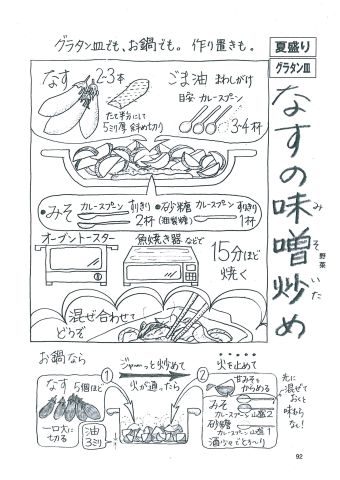 グラタン皿でも、お鍋でも。作り置きも。
夏盛り
グラタン皿
なすの味噌炒め
みそ
いた
野菜
なす 2-3本
たて半分にして
5ミリ厚 斜め切り
ごま油 まわしがけ
目安 カレースプーン
3~4杯
・みそ カレースプーン すりきり
2杯
・砂糖 カレースプーン すりきり
(粗製糖) 1杯
オーブントースター
魚焼き器などで
15分ほど
焼く
混ぜ合わせて
どうぞ
お鍋なら
なす 5個ほど
一口大に
切る
油
3ミリ
ジャーっと炒めて
1
火が通ったら
火を止めて
2
甘みそを
からめる
みそ
カレースプーン 山盛2
砂糖
カレースプーン 山盛1
酒
でとろ~り
先に
混ぜて
おくと
味むら
なし!
92